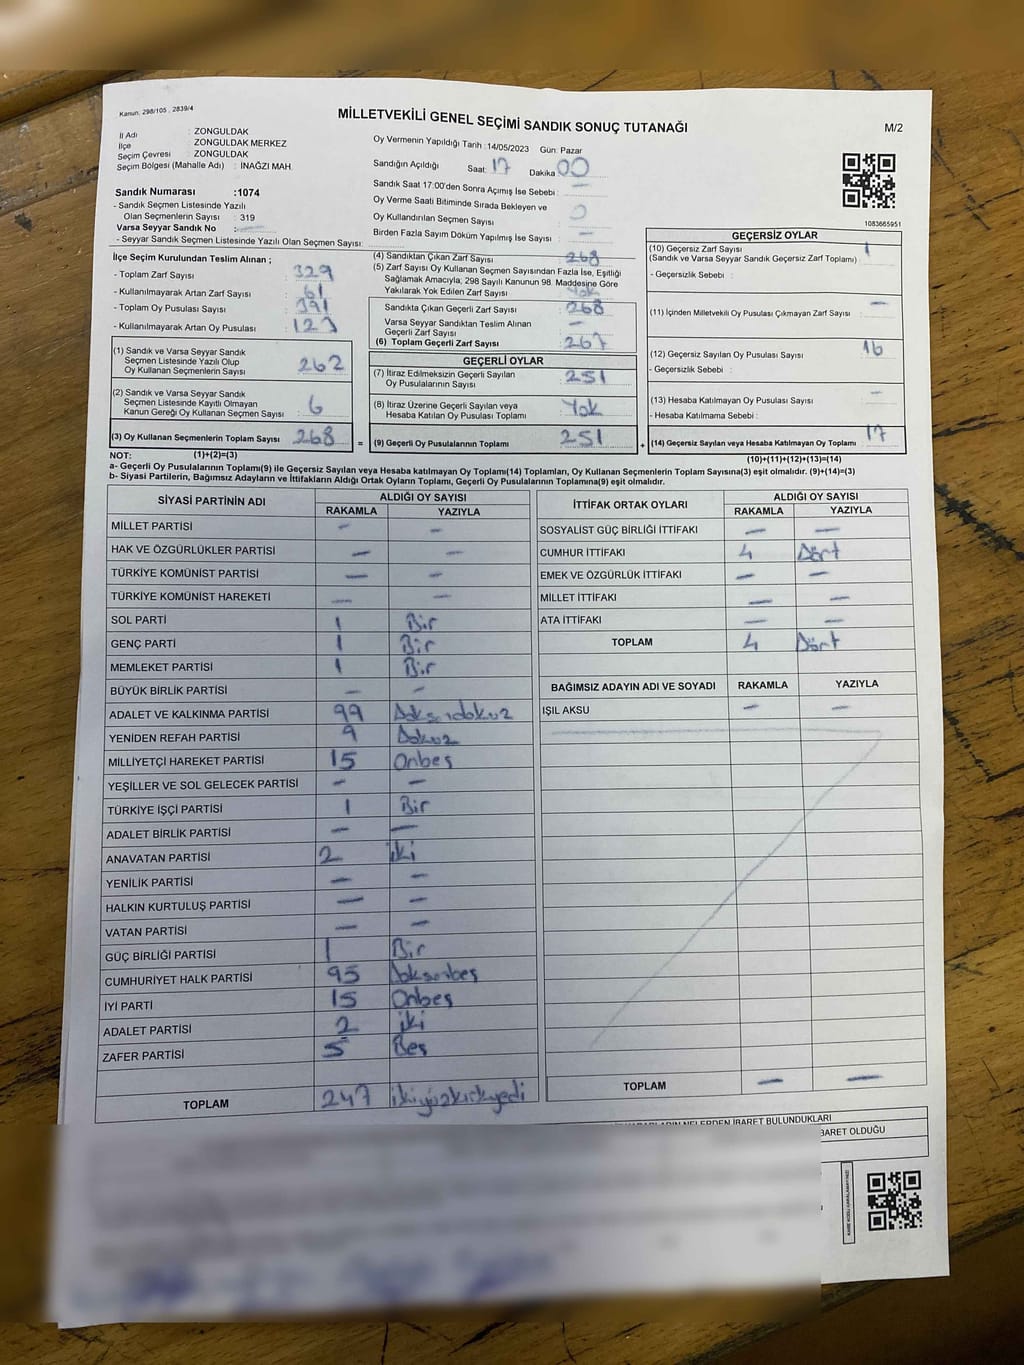 Kanun: 298/105 , 2839/4
MİLLETVEKİLİ GENEL SEÇİMİ SANDIK SONUÇ TUTANAĞI
M/2
İl Adı : ZONGULDAK
İlçe ZONGULDAK MERKEZ
Seçim Çevresi : ZONGULDAK
Seçim Bölgesi (Mahalle Adı) : İNAĞZI MAH.
Sandık Numarası :1074
- Sandık Seçmen Listesinde Yazılı
Olan Seçmenlerin Sayısı : 319
Varsa Seyyar Sandık No :
- Seyyar Sandık Seçmen Listesinde Yazılı Olan Seçmen Sayısı:
Oy Vermenin Yapıldığı Tarih :14/05/2023 Gün: Pazar
Sandığın Açıldığı Saat: 17 Dakika 00
Sandık Saat 17:00'den Sonra Açımış İse Sebebi : —
Oy Verme Saati Bitiminde Sırada Bekleyen ve
Oy Kullandırılan Seçmen Sayısı : 0
Birden Fazla Sayım Döküm Yapılmış İse Sayısı : —
1083665951
İlçe Seçim Kurulundan Teslim Alınan ;
- Toplam Zarf Sayısı : 329
- Kullanılmayarak Artan Zarf Sayısı : 61
- Toplam Oy Pusulası Sayısı : 391
- Kullanılmayarak Artan Oy Pusulası : 123
(1) Sandık ve Varsa Seyyar Sandık
Seçmen Listesinde Yazılı Olup
Oy Kullanan Seçmenlerin Sayısı : 262
(2) Sandık ve Varsa Seyyar Sandık
Seçmen Listesinde Kayıtlı Olmayan
Kanun Gereği Oy Kullanan Seçmen Sayısı : 6
(3) Oy Kullanan Seçmenlerin Toplam Sayısı : 268
(4) Sandıktan Çıkan Zarf Sayısı : 268
(5) Zarf Sayısı Oy Kullanan Seçmen Sayısından Fazla İse, Eşitliği
Sağlamak Amacıyla, 298 Sayılı Kanunun 98. Maddesine Göre
Yakılarak Yok Edilen Zarf Sayısı : Yok
Sandıkta Çıkan Geçerli Zarf Sayısı : 268
Varsa Seyyar Sandıktan Teslim Alınan
Geçerli Zarf Sayısı : —
(6) Toplam Geçerli Zarf Sayısı : 267
GEÇERLİ OYLAR
(7) İtiraz Edilmeksizin Geçerli Sayılan
Oy Pusulalarının Sayısı : 251
(8) İtiraz Üzerine Geçerli Sayılan veya
Hesaba Katılan Oy Pusulası Toplamı : Yok
= (9) Geçerli Oy Pusulalarının Toplamı : 251
GEÇERSİZ OYLAR
(10) Geçersiz Zarf Sayısı : 1
(Sandık ve Varsa Seyyar Sandık Geçersiz Zarf Toplamı)
- Geçersizlik Sebebi :
(11) İçinden Milletvekili Oy Pusulası Çıkmayan Zarf Sayısı : —
(12) Geçersiz Sayılan Oy Pusulası Sayısı : 16
- Geçersizlik Sebebi :
(13) Hesaba Katılmayan Oy Pusulası Sayısı : —
- Hesaba Katılmama Sebebi :
+ (14) Geçersiz Sayılan veya Hesaba Katılmayan Oy Toplamı : 17
NOT: (1)+(2)=(3) (10)+(11)+(12)+(13)=(14)
a- Geçerli Oy Pusulalarının Toplamı(9) ile Geçersiz Sayılan veya Hesaba katılmayan Oy Toplamı(14) Toplamları, Oy Kullanan Seçmenlerin Toplam Sayısına(3) eşit olmalıdır. (9)+(14)=(3)
b- Siyasi Partilerin, Bağımsız Adayların ve İttifakların Aldığı Ortak Oyların Toplamı, Geçerli Oy Pusulalarının Toplamına(9) eşit olmalıdır.
SİYASİ PARTİNİN ADI ALDIĞI OY SAYISI
RAKAMLA YAZIYLA
MİLLET PARTİSİ — —
HAK VE ÖZGÜRLÜKLER PARTİSİ — —
TÜRKİYE KOMÜNİST PARTİSİ — —
TÜRKİYE KOMÜNİST HAREKETİ — —
SOL PARTİ 1 Bir
GENÇ PARTİ 1 Bir
MEMLEKET PARTİSİ 1 Bir
BÜYÜK BİRLİK PARTİSİ — —
ADALET VE KALKINMA PARTİSİ 99 Doksandokuz
YENİDEN REFAH PARTİSİ 9 Dokuz
MİLLİYETÇİ HAREKET PARTİSİ 15 Onbeş
YEŞİLLER VE SOL GELECEK PARTİSİ — —
TÜRKİYE İŞÇİ PARTİSİ 1 Bir
ADALET BİRLİK PARTİSİ — —
ANAVATAN PARTİSİ 2 iki
YENİLİK PARTİSİ — —
HALKIN KURTULUŞ PARTİSİ — —
VATAN PARTİSİ — —
GÜÇ BİRLİĞİ PARTİSİ 1 Bir
CUMHURİYET HALK PARTİSİ 95 Doksanbeş
İYİ PARTİ 15 Onbeş
ADALET PARTİSİ 2 iki
ZAFER PARTİSİ 5 Beş
TOPLAM 247 ikiyüzkırkyedi
İTTİFAK ORTAK OYLARI ALDIĞI OY SAYISI
RAKAMLA YAZIYLA
SOSYALİST GÜÇ BİRLİĞİ İTTİFAKI — —
CUMHUR İTTİFAKI 4 Dört
EMEK VE ÖZGÜRLÜK İTTİFAKI — —
MİLLET İTTİFAKI — —
ATA İTTİFAKI — —
TOPLAM 4 Dört
BAĞIMSIZ ADAYIN ADI VE SOYADI RAKAMLA YAZIYLA
IŞIL AKSU — —
TOPLAM — —
NELERDEN İBARET BULUNDUKLARI
BARET OLDUĞU